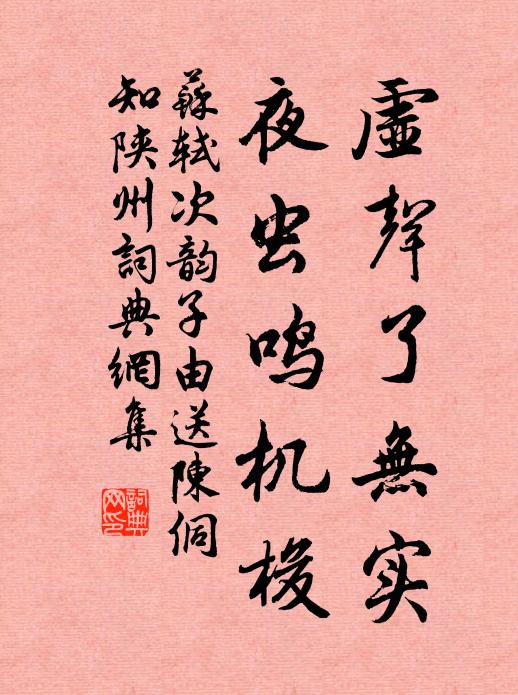 虛聲了無实
夜虫鳴机梭
蘇軾次韵子由送陳侗
知陕州詞典網集
詞典网印